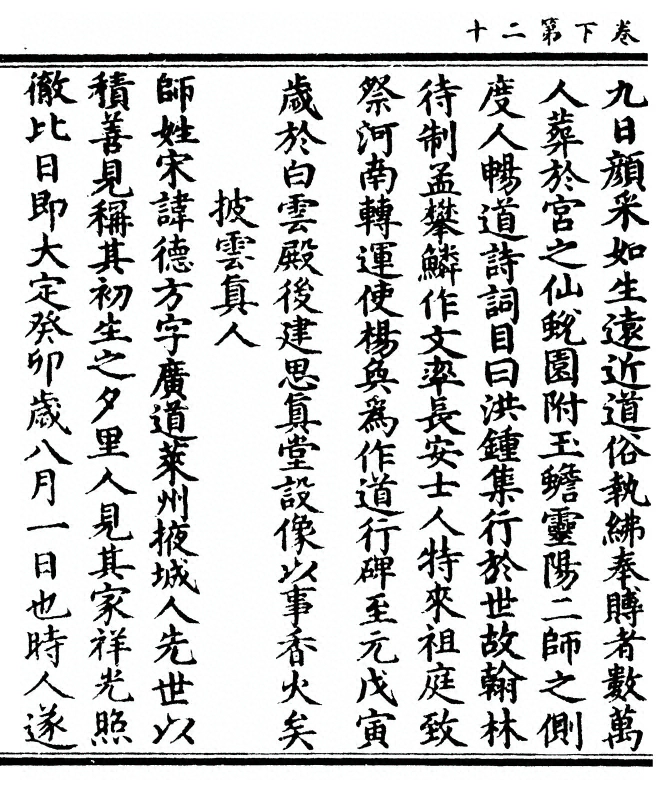 卷下第二十
九日顏采如生遠近道俗執紼奉賻者數萬
人葬於宮之仙蛻園附玉蟾靈陽二師之側
度人暢道詩詞目曰洪鍾集行於世故翰林
待制孟攀鱗作文率長安士人特來祖庭致
祭河南轉運使楊奐爲作道行碑至元戊寅
歲於白雲殿後建思眞堂設像以事香火矣
披雲眞人
師姓宋諱德方字廣道萊州掖城人先世以
積善見稱其初生之夕里人見其家祥光照
徹比日即大定癸卯歲八月一日也時人遂